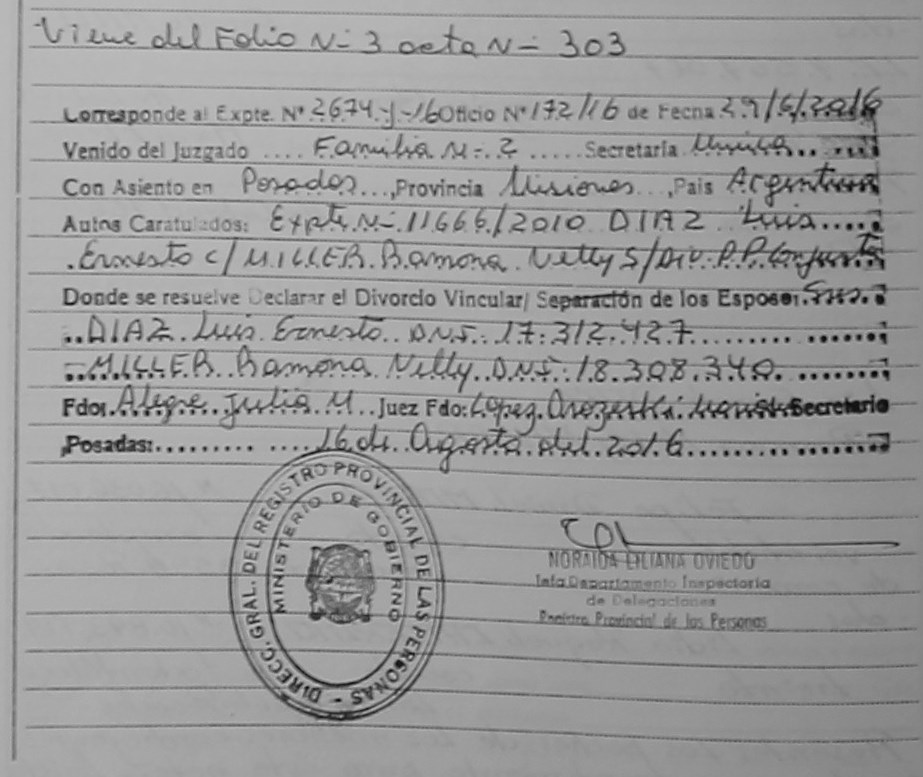 Viene del Folio N- 3 acta N- 303
Corresponde al Expte. Nº 2674-J-16 Oficio Nº 172/16 de Fecha 29/6/2016
Venido del Juzgado .... Familia N-. 2 ..... Secretaría Unica......
Con Asiento en Posadas..., Provincia Misiones..., País Argentina
Autos Caratulados: Expte. N-. 11666/2010 DIAZ Luis.....
.Ernesto c/ MILLER. Ramona. Nelly S/Div. P.P. Conjunta
Donde se resuelve Declarar el Divorcio Vincular/ Separación de los Esposos:
..DIAZ Luis Ernesto D.N.I.: 17.312.427..............
..MILLER. Ramona Nelly. D.N.I.: 18.308.340.........
Fdo: Alegre Julia M.. Juez Fdo: López Secretario
Posadas:......... .....16 de Agosto del 2016...............
DIRECC. GRAL. DEL REGISTRO PROVINCIAL DE LAS PERSONAS -
MINISTERIO DE GOBIERNO
NORAIDA LILIANA OVIEDO
Jefa Departamento Inspectoria
de Delegaciones
Registro Provincial de las Personas